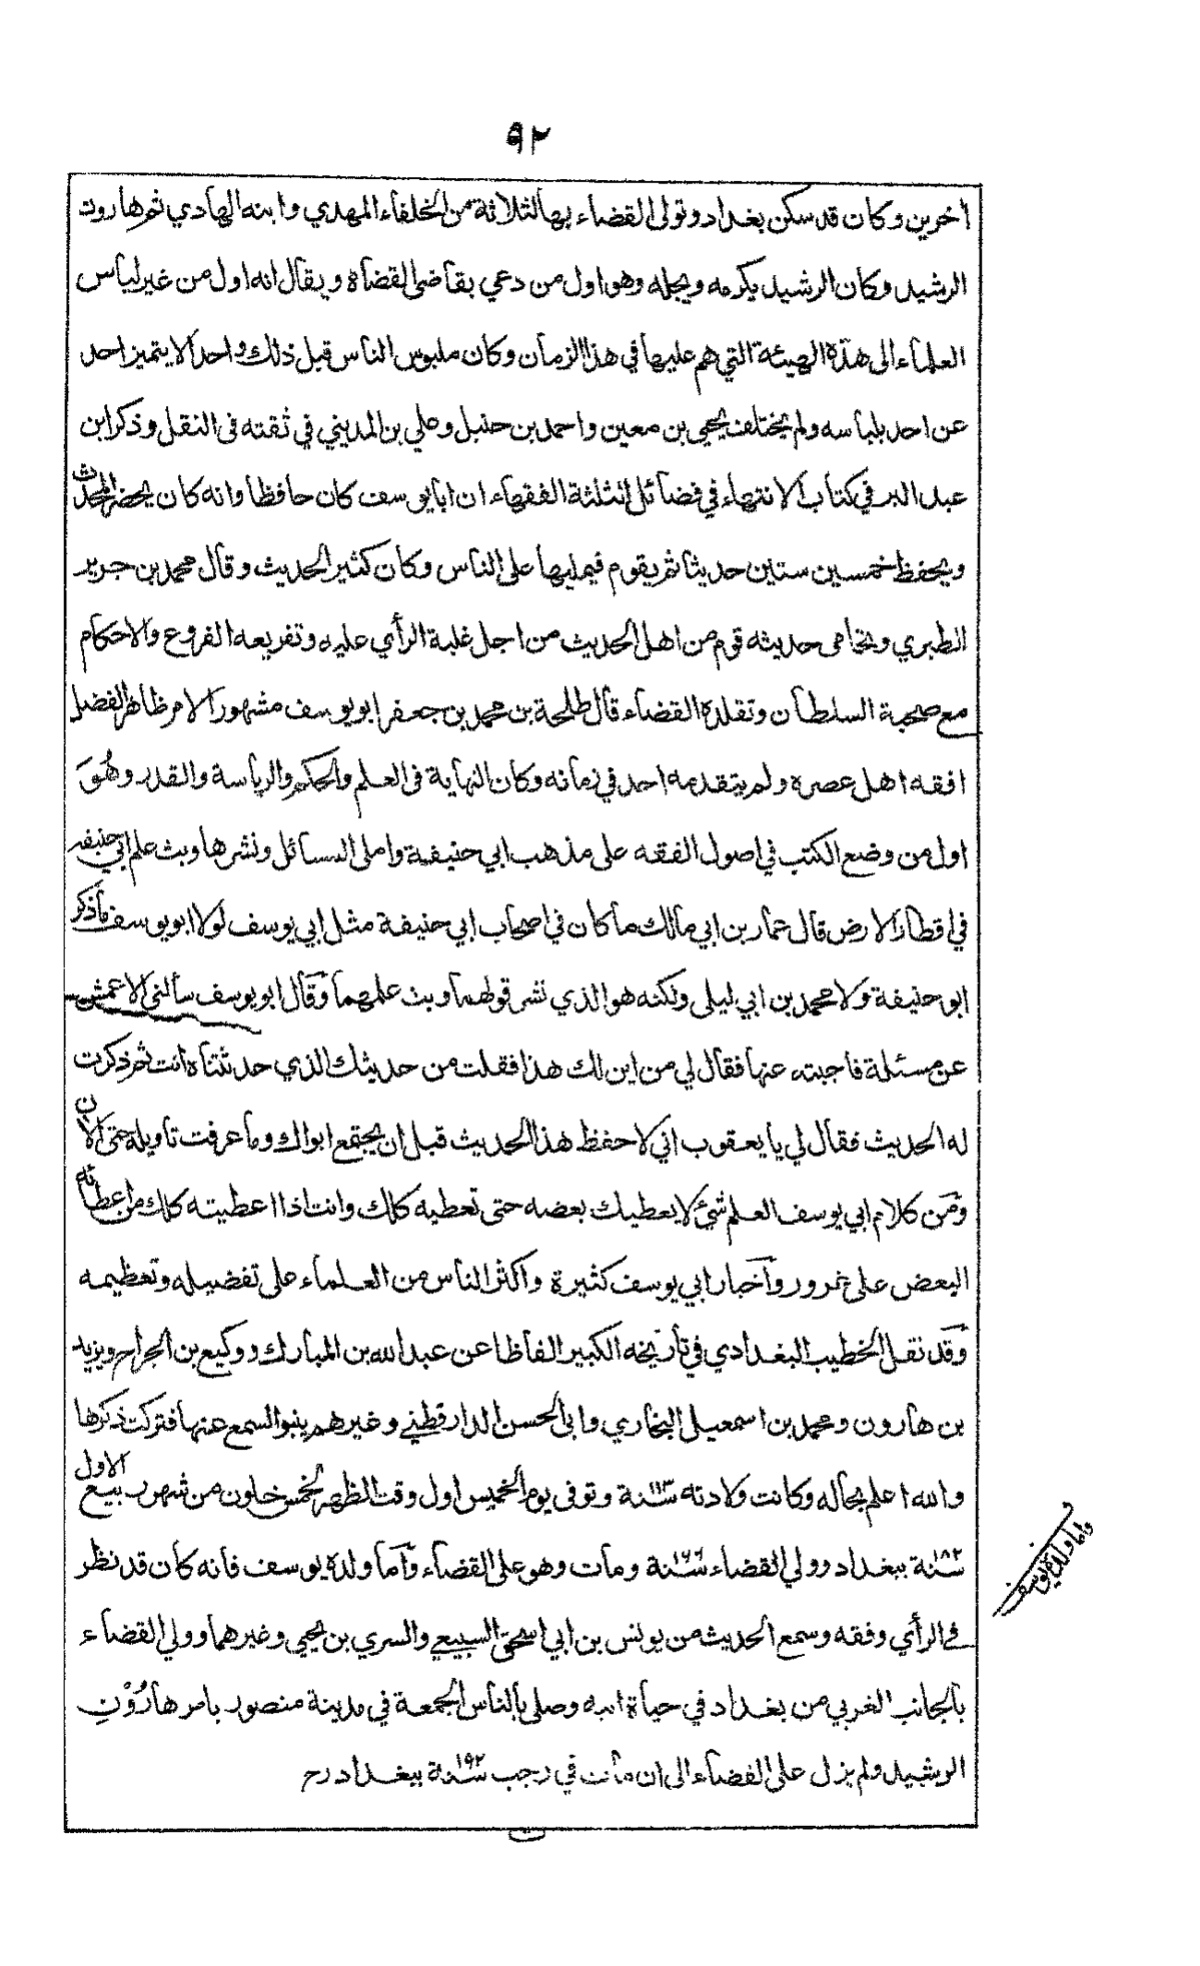 ٩٢
آخرين وكان قد سكن بغداد وتولى القضاء بها لثلاثة من الخلفاء المهدي وابنه الهادي ثم هارون
الرشيد وكان الرشيد يكرمه ويجله وهو اول من دعي بقاضى القضاة ويقال انه اول من غير لباس
العلماء الى هذه الهيئة التي هم عليها في هذا الزمان وكان ملبوس الناس قبل ذلك واحدا لا يتميز احد
عن احد بلباسه ولم يختلف يحيى بن معين واحمد بن حنبل وعلي بن المديني في ثقته فى النقل وذكر ابن
عبد البر في كتاب الانتهاء في فضائل الثلثة الفقهاء ان ابا يوسف كان حافظا وانه كان يحضر المحدث
ويحفظ خمسين ستين حديثا ثم يقوم فيمليها على الناس وكان كثير الحديث وقال محمد بن جرير
الطبري وتحامى حديثه قوم من اهل الحديث من اجل غلبة الرأي عليه وتفريعه الفروع والاحكام
مع صحبة السلطان وتقلده القضاء قال طلحة بن محمد بن جعفر ابو يوسف مشهور الامر ظاهر الفضل
افقه اهل عصره ولم يتقدمه احد في زمانه وكان النهاية فى العلم والحكم والرياسة والقدر وهُوَ
اول من وضع الكتب في اصول الفقه على مذهب ابي حنيفة واملى المسائل ونشرها وبث علم ابي حنيفه
في اقطار الارض قال عمار بن ابي مالك ما كان في اصحاب ابي حنيفة مثل ابي يوسف لولا ابو يوسف ما ذكر
ابو حنيفة ولا محمد بن ابي ليلى ولكنه هو الذي نشر قولهما وبث علمهما وقال ابو يوسف سألنى الاعمش
عن مسئلة فاجبته عنها فقال لي من اين لك هذا فقلت من حديثك الذي حدثتناه انت ثم ذكرت
له الحديث فقال لي يا يعقوب اني لاحفظ هذا الحديث قبل ان يجتمع ابواك وما عرفت تاويله حتى الان
ومن كلام ابي يوسف العلم شئ لا يعطيك بعضه حتى تعطيه كلك وانت اذا اعطيته كلك من اعطائه
البعض على غرور وآخبار ابي يوسف كثيرة واكثر الناس من العلماء على تفضيله وتعظيمه
وقد نقل الخطيب البغدادي في تأريخه الكبير الفاظا عن عبد الله بن المبارك ووكيع بن الجراح ويزيد
بن هارون ومحمد بن اسمعيل البخاري وابى الحسن الدارقطني وغيرهم ينبو السمع عنها فتركت ذكرها
والله اعلم بحاله وكانت ولادته سنة ١١٣ وتوفى يوم الخميس اول وقت الظهر لخمس خلون من شهر ربيع الاول
سنة ١٨٢ ببغداد وولي القضاء سنة ١٦٦ ومات وهو على القضاء وآما ولده يوسف فانه كان قد نظر
في الرأي وفقه وسمع الحديث من يونس بن ابي اسحق السبيعي والسري بن يحيى وغيرهما وولي القضاء
بالجانب الغربي من بغداد في حياة ابيه وصلى بالناس الجمعة في مدينة منصور بامر هارُوْنِ
الرشيد ولم يزل على القضاء الى ان مات في رجب سنة ١٩٢ ببغداد رح
واما ولده يوسف